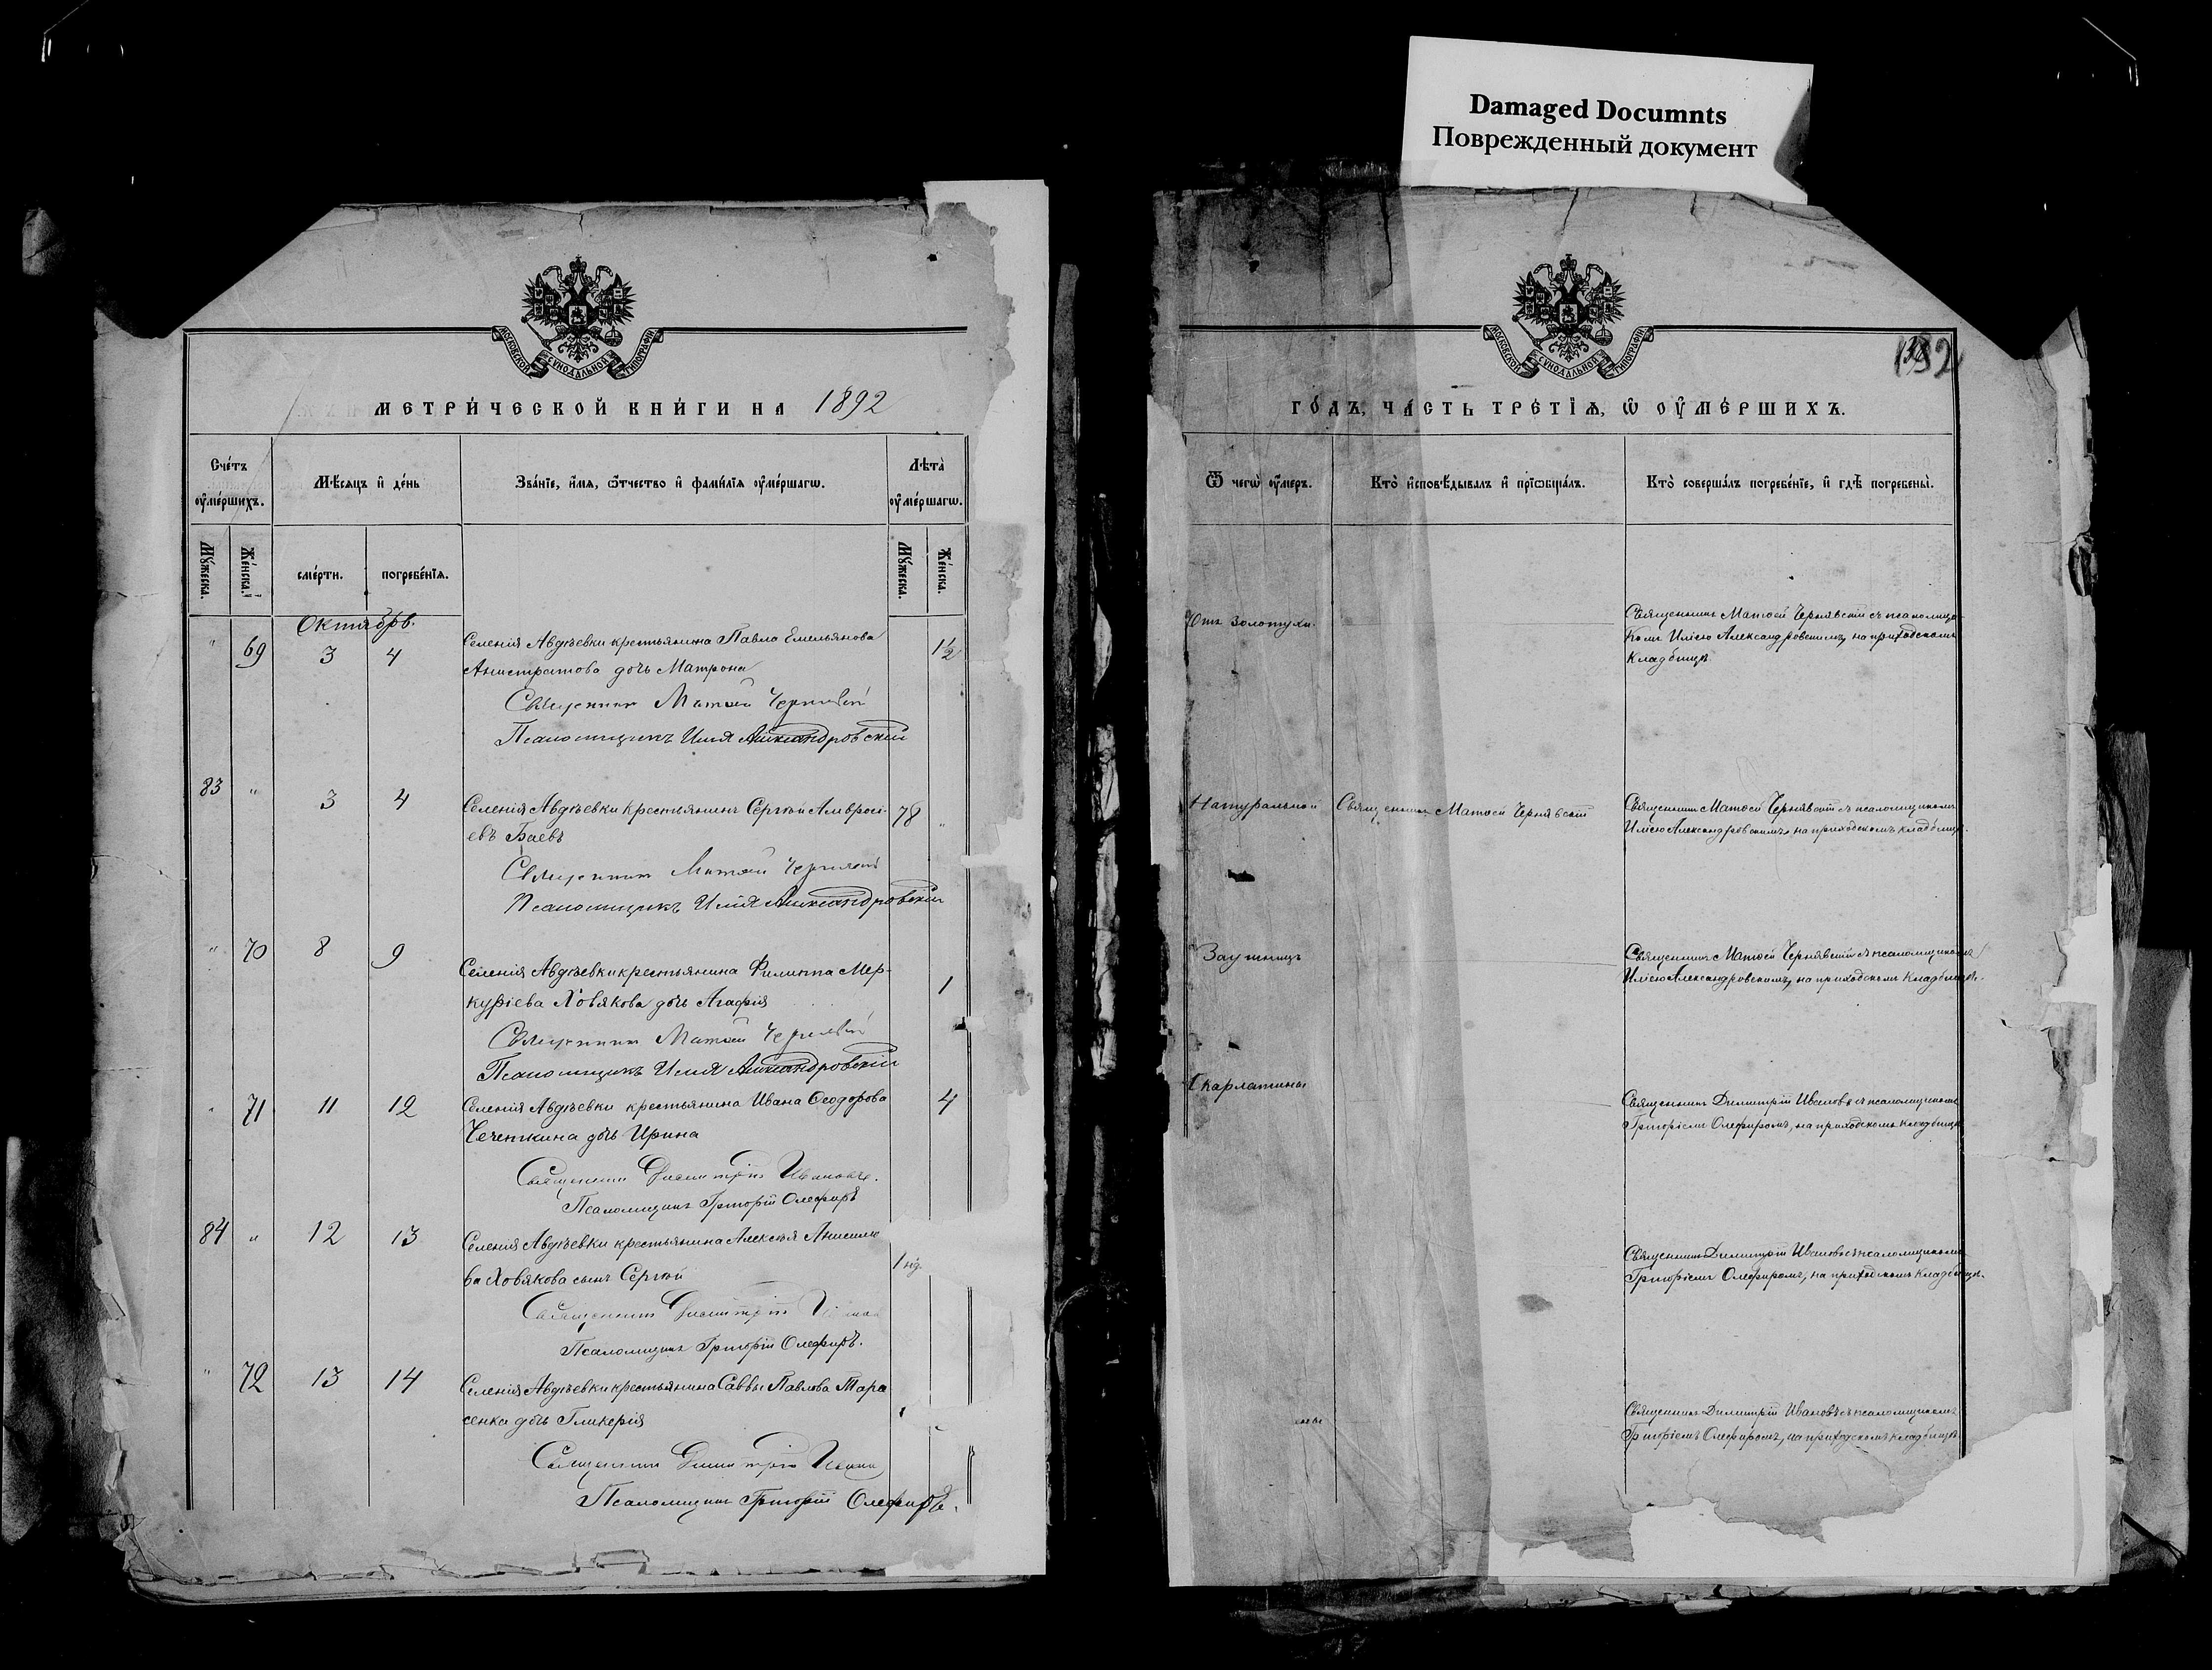 Damaged Documnts
Поврежденный документ
МОСКОВСКОЙ СѴНОДАЛЬНОЙ ТИПОГРАФІИ
МЕТРИ́ЧЕСКОЙ КНИ́ГИ НА 1892
Сче́тъ ᲂу҆ме́ршихъ.
Мѣ́сяцъ и҆ де́нь
Зва́нїе, и҆́мя, ѻ҆́тчество и҆ фами́лїя ᲂу҆ме́ршагѡ.
Лѣ́та ᲂу҆ме́ршагѡ.
Мꙋ́жеска.
Же́нска.
сме́рти.
погребе́нїѧ.
Мꙋ́жеска.
Же́нска.
Октябрь.
" 69 3 4 Селенія Авдѣевки крестьянина Павла Емельянова 1½
Анистратова дочь Матрона
Священникъ Матѳей Чернявскій
Псаломщикъ Илія Александровскій
83 " 3 4 Селенія Авдѣевки крестьянинъ Сергѣй Амвросі- 78 "
евъ Баевъ
Священникъ Матѳей Чернявскій
Псаломщикъ Илія Александровскій
" 70 8 9 Селенія Авдѣевки крестьянина Филиппа Мер- 1
куріева Ховякова дочь Агафія
Священникъ Матѳей Чернявскій
Псаломщикъ Илія Александровскій
" 71 11 12 Селенія Авдѣевки крестьянина Ивана Ѳеодорова 4
Чечеткина дочь Ирина
Священникъ Димитрій Ивановъ.
Псаломщикъ Григорій Олефиръ
84 " 12 13 Селенія Авдѣевки крестьянина Алексѣя Анисимо
ва Ховякова сынъ Сергѣй 1 нд.
Священникъ Димитрій
Псаломщикъ Григорій Олефиръ.
" 72 13 14 Селенія Авдѣевки крестьянина Саввы Павлова Тара
сенка дочь Гликерія
Священникъ Димитрій
Псаломщикъ Григорій Олефиръ.
МОСКОВСКОЙ СѴНОДАЛЬНОЙ ТИПОГРАФІИ
192
ГО́ДЪ, ЧА́СТЬ ТРЕ́ТЇѦ, Ѡ҆ ОУ҆МЕ́РШИХЪ.
Ѿ чегѡ̀ ᲂу҆́меръ.
Кто̀ и҆сповѣ́дывалъ и҆ прїѡбща́лъ.
Кто̀ соверша́лъ погребе́нїе, и҆ гдѣ̀ погребены̀.
Отъ золотухи.
Священникъ Матѳей Чернявскій съ псаломщи-
комъ Иліею Александровскимъ, на приходскомъ
кладбищѣ
Натуральной
Священникъ Матѳей Чернявскій
Священникъ Матѳей Чернявскій съ псаломщикомъ
Иліею Александровскимъ, на приходскомъ кладбищѣ.
Заушницъ
Священникъ Матѳей Чернявскій съ псаломщикомъ
Иліею Александровскимъ, на приходскомъ кладбищѣ.
Скарлатины
Священникъ Димитрій Ивановъ съ псаломщикомъ
Григоріемъ Олефиромъ, на приходскомъ кладбищѣ
Священникъ Димитрій Ивановъ съ псаломщикомъ
Григоріемъ Олефиромъ, на приходскомъ кладбищѣ.
Священникъ Димитрій Ивановъ съ псаломщикомъ
Григоріемъ Олефиромъ, на приходскомъ кладбищѣ